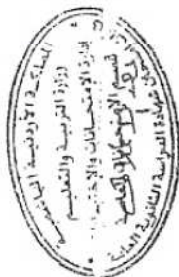 المملكة الأردنية الهاشمية
وزارة التربية والتعليم
إدارة الامتحانات والاختبارات
قسم
شهادة الدراسة الثانوية العامة